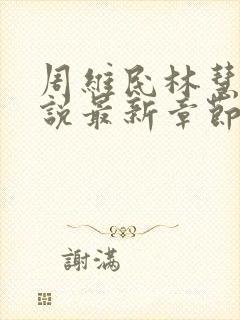 周維民林慧
說最新章節
謝滿